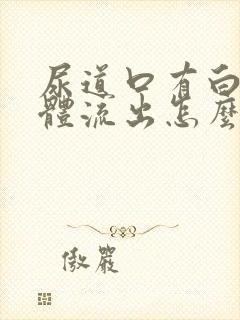 尿道口有白
體流出怎麼
傲嚴